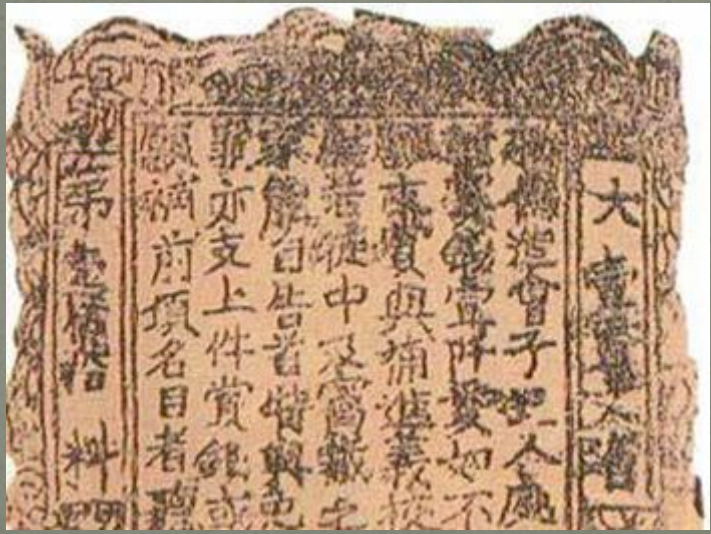 大壹貫文省
偽造會子犯人處
賞錢壹阡貫如不
支賞與補進義校
尉若徒中及窩藏之
家能自告首特與免
罪亦支上件賞錢或
願補前項名目者聽
第壹佰拾料